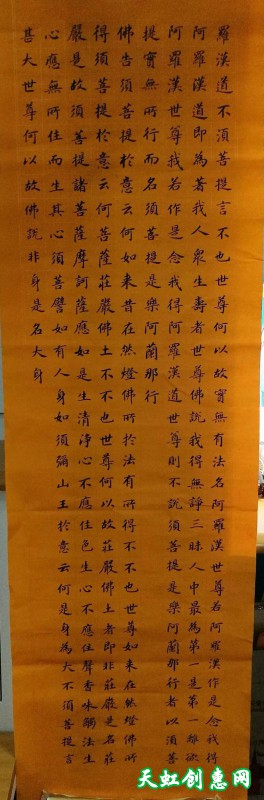 羅漢道不須菩提言不也世尊何以故實無有法名阿羅漢世尊若阿羅漢作是念我得
阿羅漢道即為著我人眾生壽者世尊佛說我得無諍三昧人中最為第一是第一離欲
阿羅漢世尊我若作是念我得阿羅漢道世尊則不說須菩提是樂阿蘭那行者以須菩
提實無所行而名須菩提是樂阿蘭那行
佛告須菩提於意云何如來昔在然燈佛所於法有所得不不也世尊如來在然燈佛所
得須菩提於意云何菩薩莊嚴佛土不不也世尊何以故莊嚴佛土者即非莊嚴是名莊
嚴是故須菩提諸菩薩摩訶薩應如是生清淨心不應住色生心不應住聲香味觸法生
心應無所住而生其心須菩譬如有人身如須彌山王於意云何是身為大不須菩提言
甚大世尊何以故佛說非身是名大身
天虹创意网